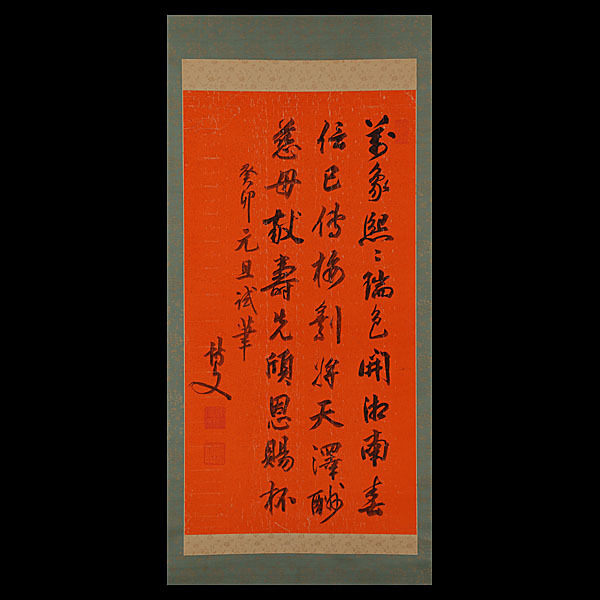 萬象熙〻瑞色開湘南春
信已傳梅剩將天澤酬
慈母献壽先傾恩賜杯
癸卯元旦試筆
博文